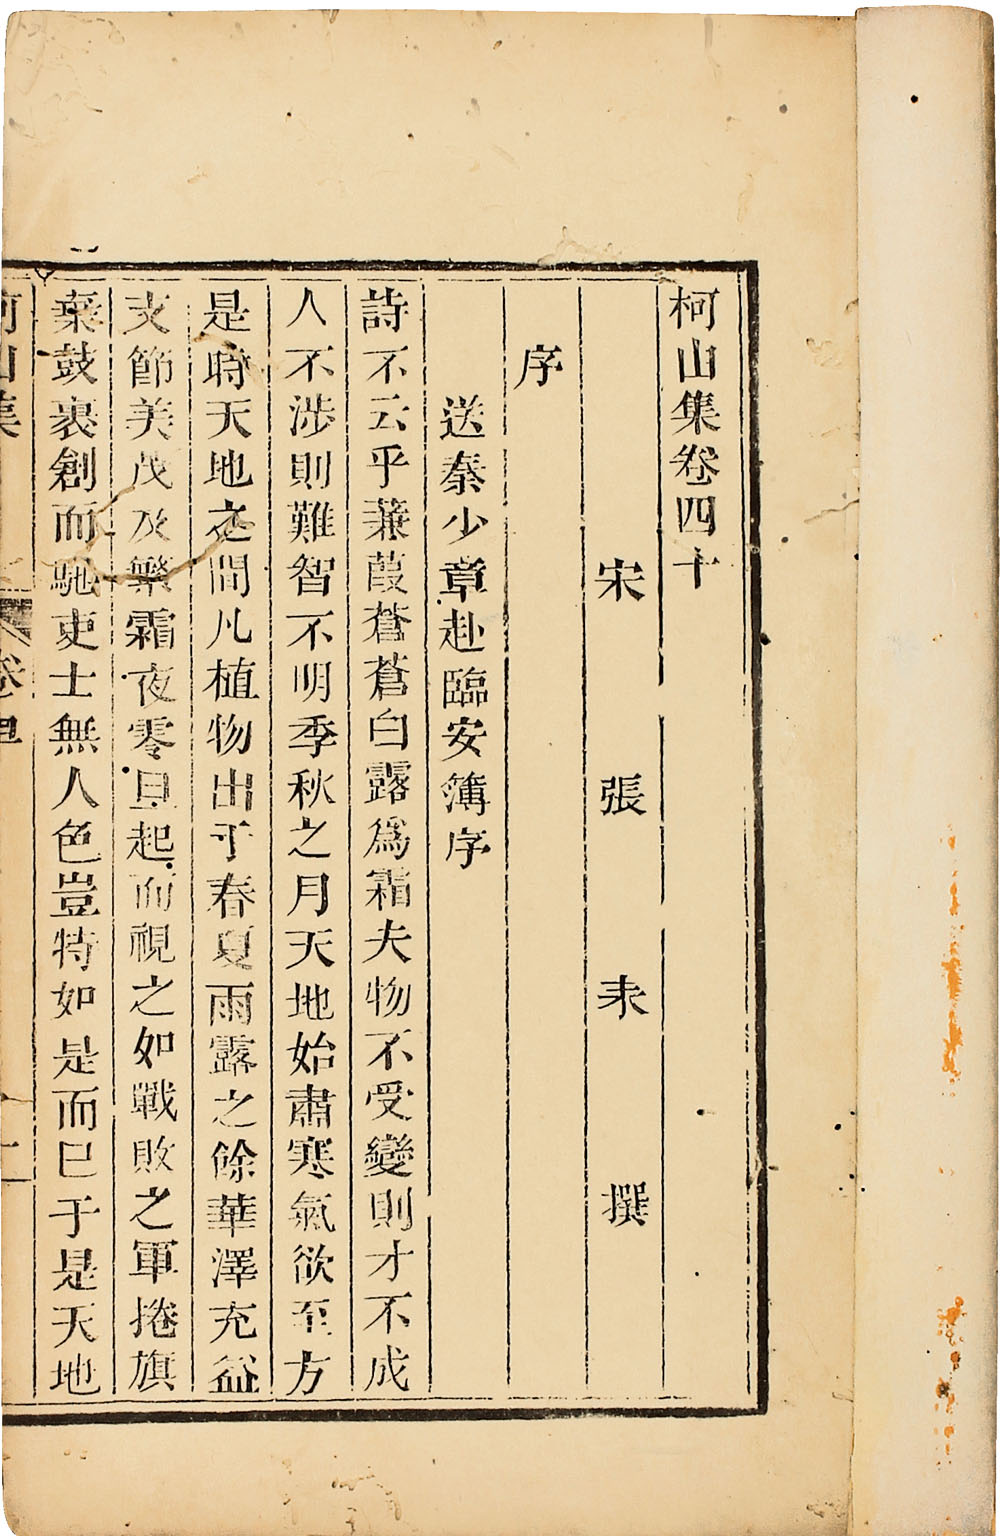 柯山集卷四十
宋張耒撰
序
送秦少章赴臨安簿序
詩不云乎蒹葭蒼蒼白露爲霜夫物不受變則才不成
人不涉則難智不明季秋之月天地始肅寒氣欲至方
是時天地之間凡植物出于春夏雨露之餘華澤充益
支節美茂及繁霜夜零旦起而視之如戰敗之軍捲旗
棄鼓裹創而馳吏士無人色豈特如是而已于是天地
柯山集